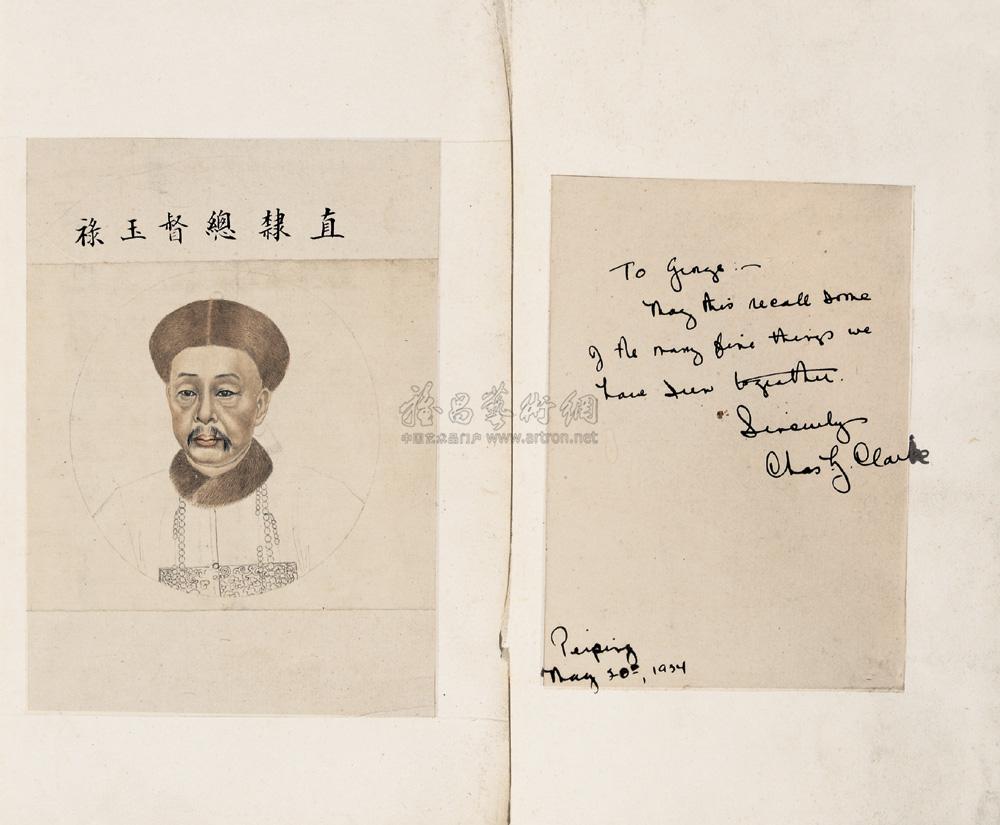 直隸總督玉祿
To George:—
May this recall some
of the many fine things we
have seen together.
Sincerely
Chas G. Clarke
Peiping
May 30, 1934
雅昌藝術網
中国艺术品门户 www.artron.net